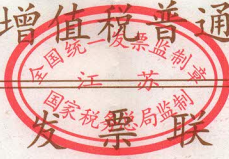 增值税普通
全国统一发票监制章
江苏
国家税务总局监制
发票联